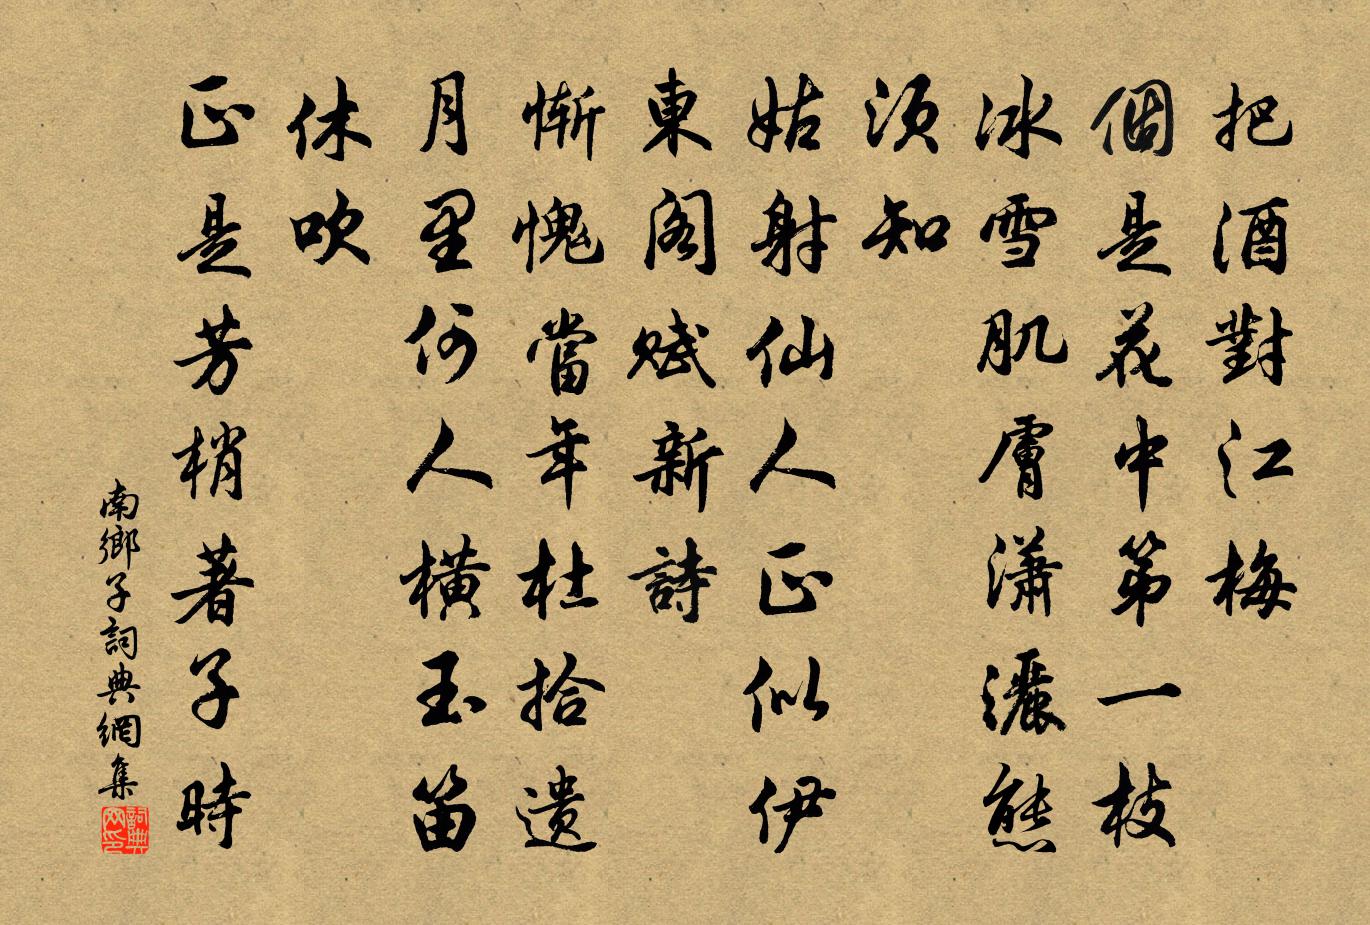 把酒對江梅
個是花中第一枝
冰雪肌膚瀟灑態
須知
姑射仙人正似伊
東閣賦新詩
慚愧當年杜拾遺
月里何人橫玉笛
休吹
正是芳梢著子時
南鄉子詞典網集
詞典網印